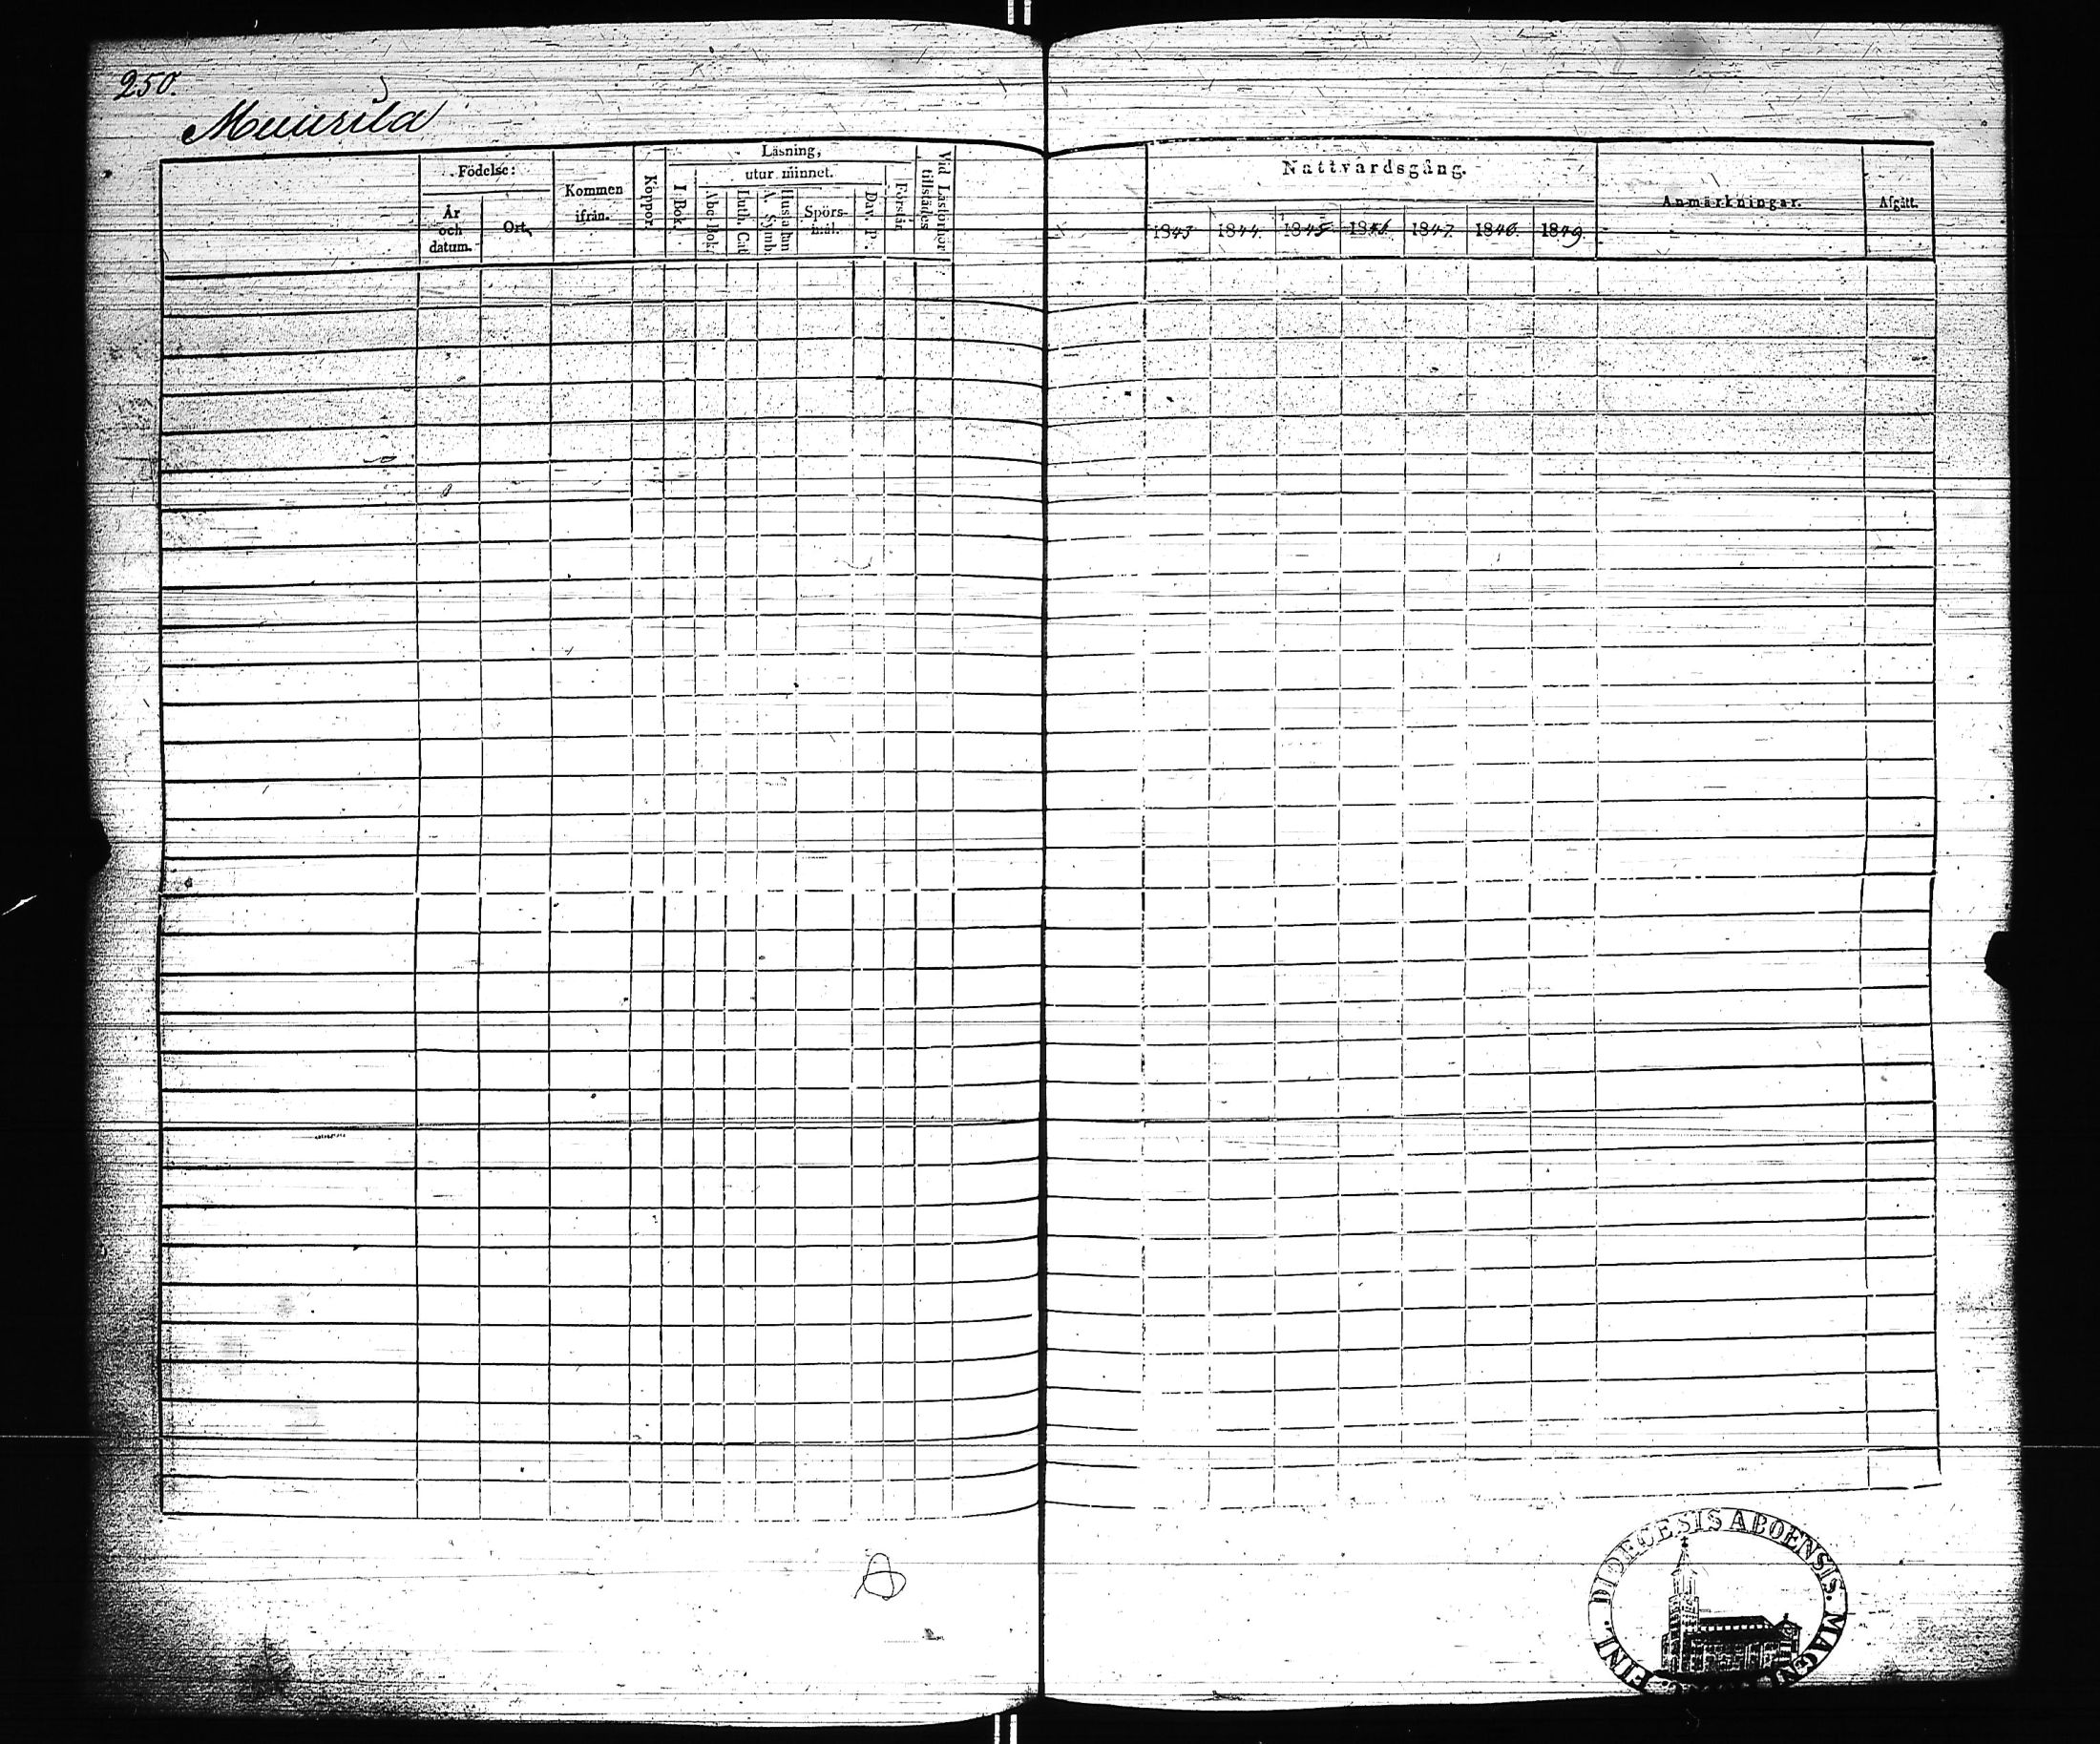 250.
Muurila
Födelse:
År och datum.
Ort.
Kommen ifrån.
Koppor.
Läsning,
utur minnet.
I Bok.
Abc-Bok.
Luth. Cat.
A. Symb.
Hustafl.
Spörsmål.
Dav. P.
Förstår.
Vid Läsförhör tillstädes
Nattvardsgång.
1843
1844.
1845
1846
1847.
1848.
1849.
Anmärkningar.
Afgått.
DIOECESIS ABOENSIS. MAGN. FINL.